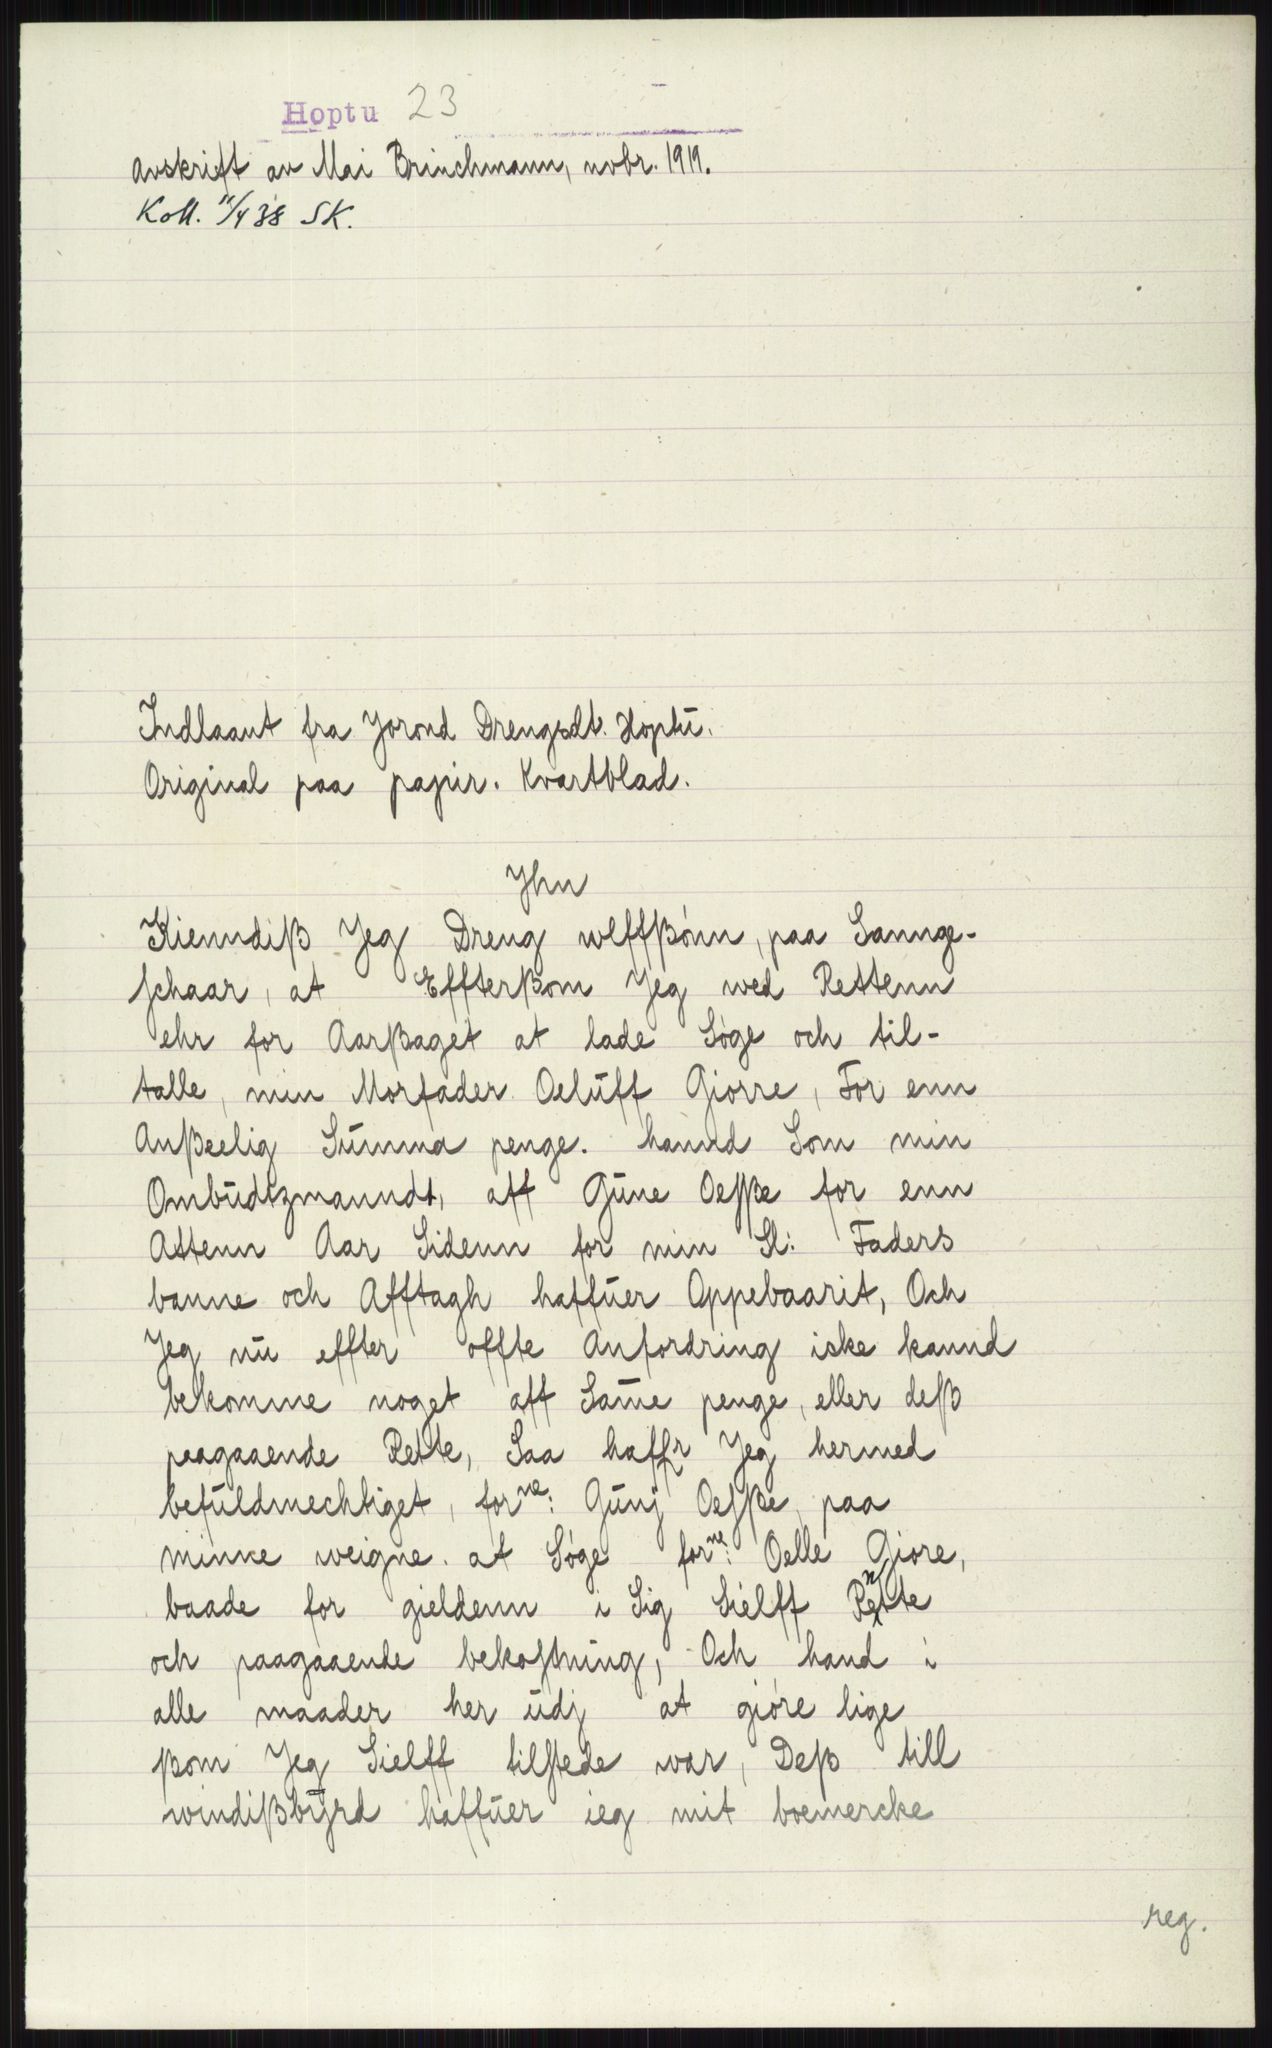 Hoptu 23
Avskrift av Mai Brinchmann, novbr. 1919.
Koll. 11/4 38 SK.
Indlaant fra Jorond Drengsdt. Hoptū.
Original paa papir. Kvartblad.
Jhn
Kienndiß Jeg Dreng wlffßónn, paa Sannge-
schaar, at Effterßom Jeg wed Rettenn
ehr for Aarßaget at lade Søge och til-
talle, min Morfader Oelūff Giorre, For enn
Anßeelig Sūmma penge. hannd Som min
Ombūdtzmanndt, aff Gūne Oelsße for enn
Attenn Aar Sidenn for min Sl: Faders
banne och Afftagh haffūer Oppebaarit, Och
Jeg nū effter offte Anfordring iske kannd
bekomme noget aff Same penge, eller deß
paagaaende Rette, Saa haffr Jeg hermed
befūldmechtiget, forne: Gūnj Oelsße, paa
minne weigne. at Søge forne: Oelle Giore,
baade for gieldenn i Sig Siélff Rentte
och paagaaende bekostning, Och hand i
alle maader her ūdj at gióre lige
ßom Jeg Sielff tilstede war, Deß till
windißbÿrd haffūer ieg mit boemercke
reg.